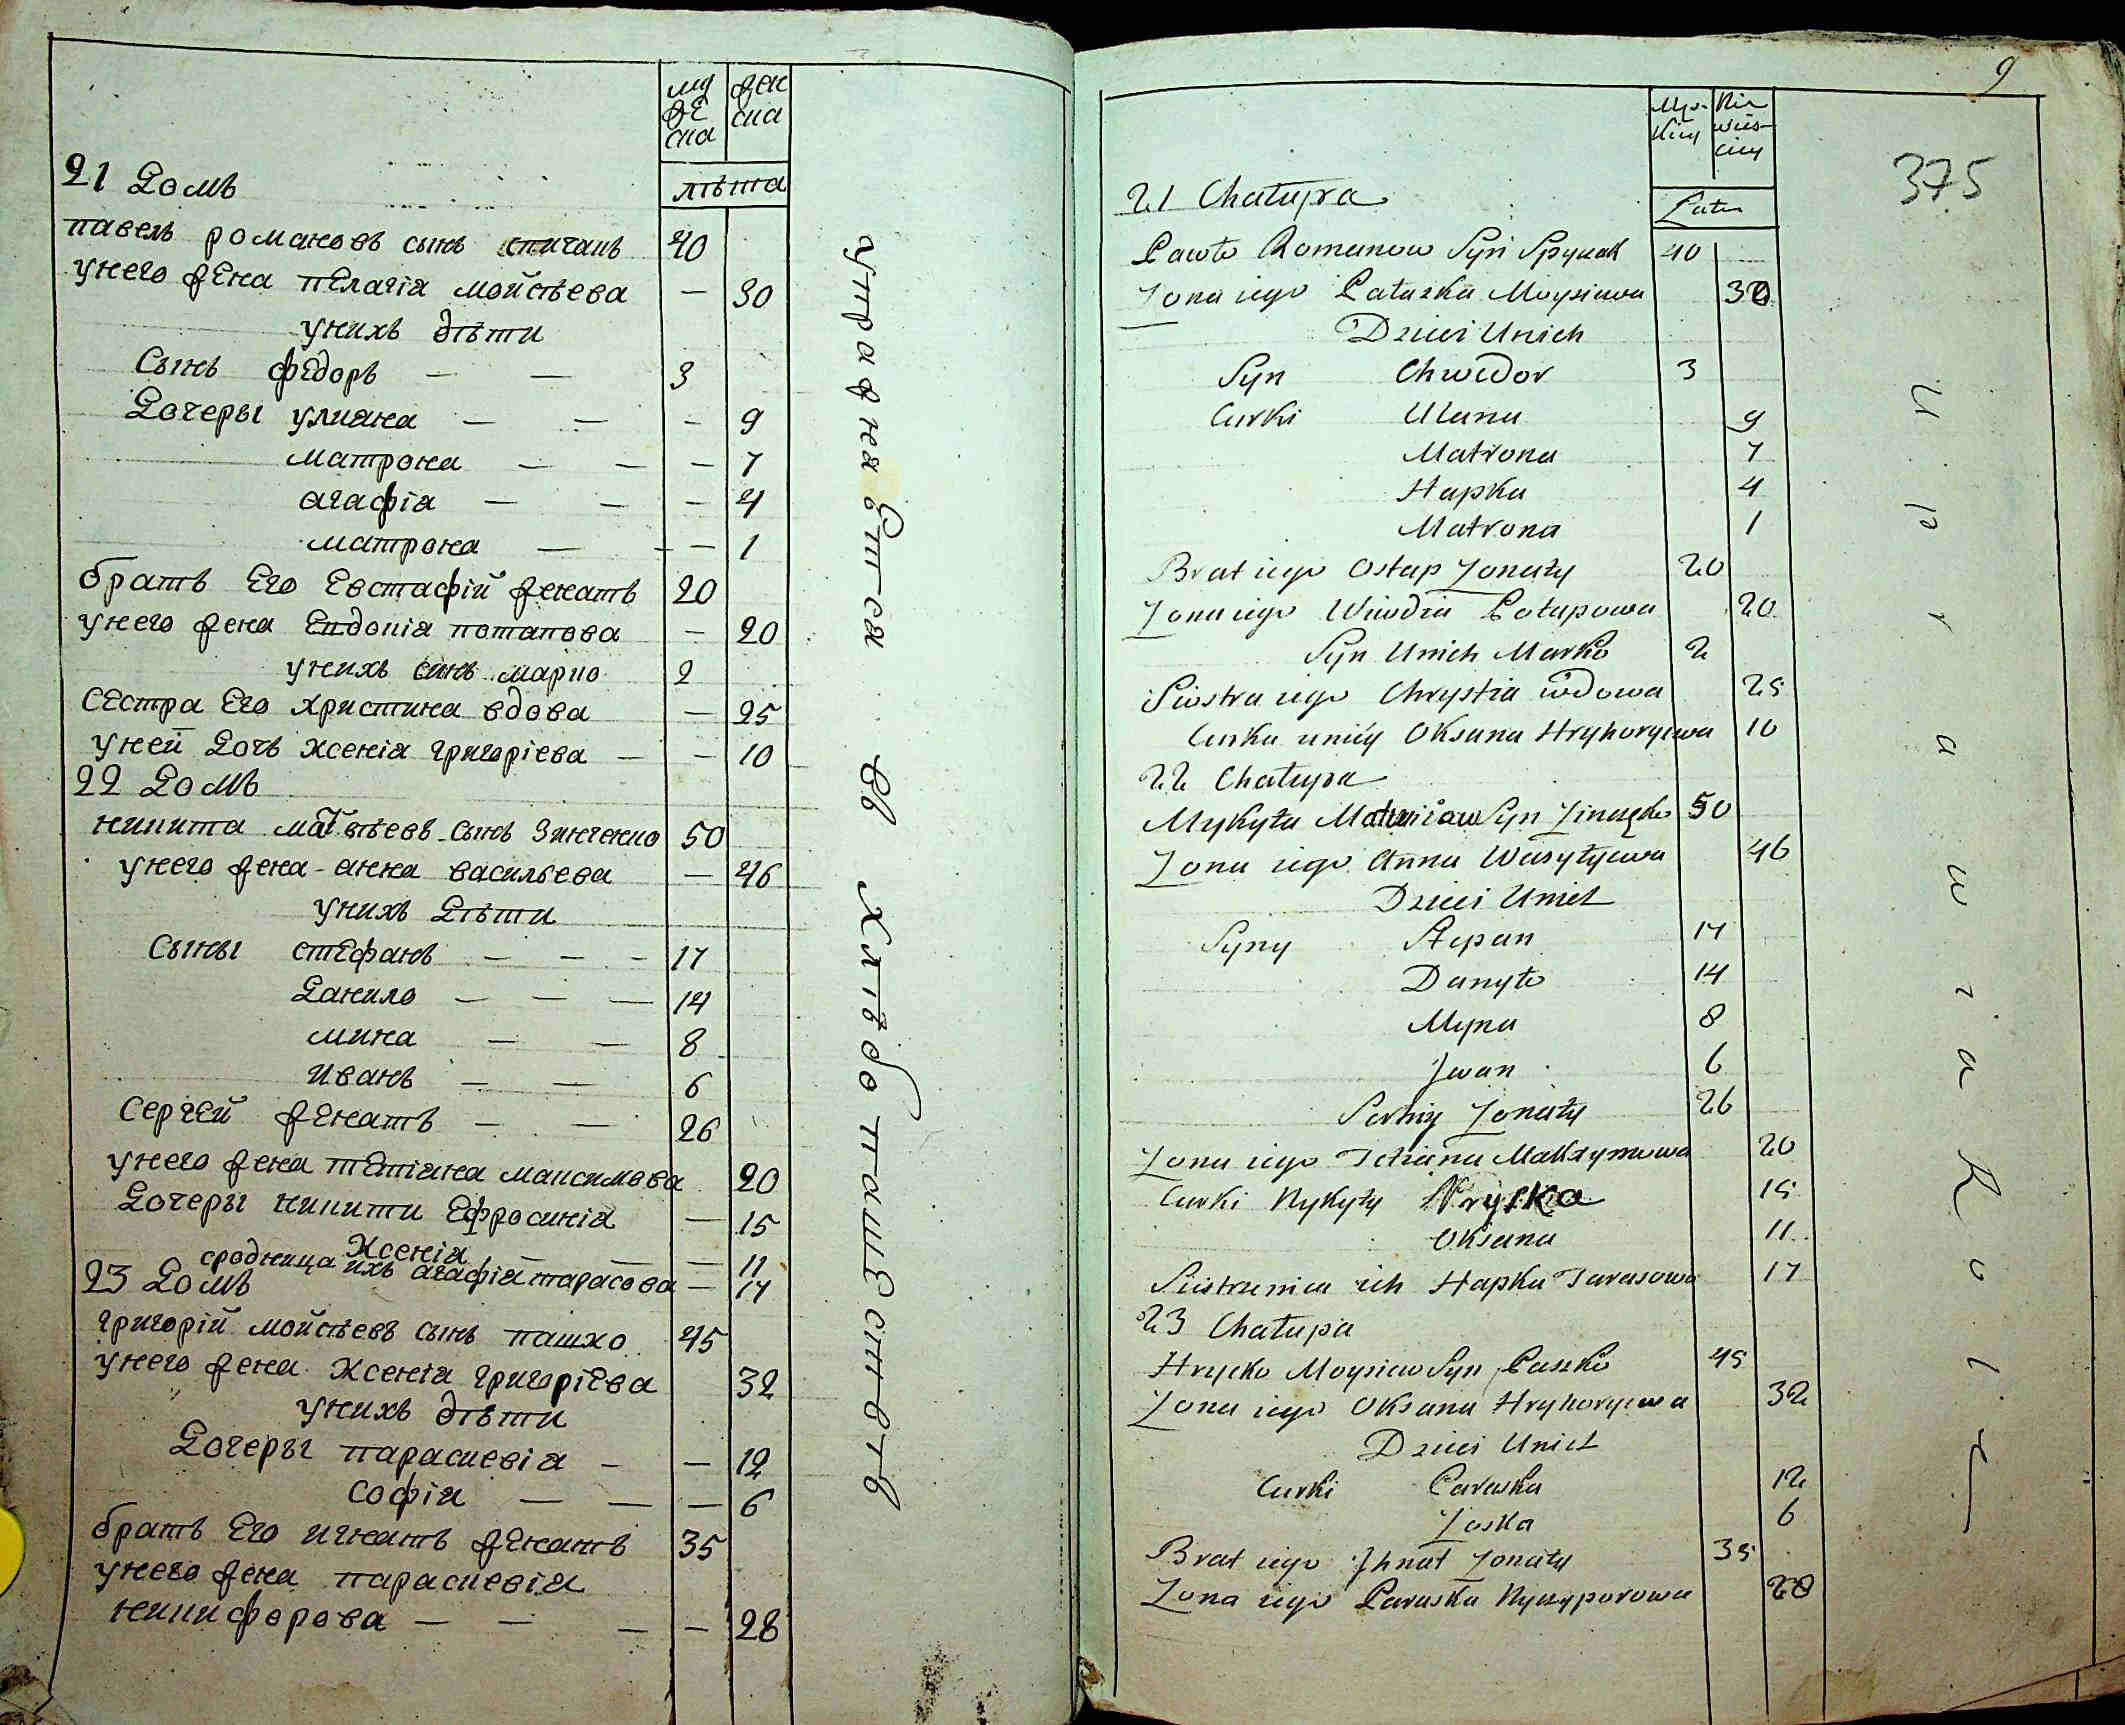 муже
ска
жен
ска
лѣта
21 Домъ
павелъ романовъ сынъ спичакъ 40
у него жена пелагія мойсѣева — 30
у нихъ дѣти
Сынъ федоръ — — 3
Дочеры улиана — — - 9
матрона — — - 7
агафіа — — - 4
матрона — - - 1
братъ Его Евстафій женатъ 20
у него жена Евдокіа потапова - 20
у нихъ синъ марко 2
СЕстра Его христина вдова — 25
у ней Дочъ ксеніа григоріева — - 10
22 Домъ
никита матвѣевъ сынъ Зинченко 50
у него жена - анна васильева — 46
у нихъ Дѣти
Сыны стЕфанъ — — - 17
Данило — — — 14
мина — — 8
иванъ — — 6
Сергей женатъ — — 26
у него жена тЕтіана максимова 20
Дочеры никити Ефросиніа — 15
Ксеніа — — 11
сродница ихъ агафіа тарасова — 17
23 Домъ
григорій мойсѣевъ сынъ пашко 45
у него жена Ксеніа григоріЕва 32
у нихъ дѣти
Дочеры параскевіа - — 12
Софіа — — — 6
братъ Его игнатъ женатъ 35
у него жена параскевіа
никифорова — — — - 28
упражняЕтся въ хлѣбопашЕствѣ
9
375
Męz-
kiey
Nie
wieś-
ciey
Lata
21 Chałupa
Pawło Romanow Syn Spyczak 40
Zona iego Pałazka Moysiewa 30
Dzieci Unich
Syn Chwedor 3
Curki Ulana 9
Matrona 7
Hapka 4
Matrona 1
Brat iego Ostap Zonaty 20
Zona iego Wiwdia Potapowa 20
Syn Unich Marko 2
Siostra iego Chrystia wdowa 25
Curka uniey Oksana Hryhoryewa 10
22 Chałupa
Mykyta Matwiiow Syn Zinczeko 50
Zona iego Anna Wasylyewa 46
Dzieci Unich
Syny Stepan 17
Danyło 14
Myna 8
Jwan 6
Serhiy Zonaty 26
Zona iego Tetiana Maksymowa 20
Curki Nykyty Pryska 15
Oksana 11
Siestrzenica ich Hapka Tarasowa 17
23 Chałupa
Hrycko Moysiew Syn Paszko 45
Zona iego Oksana Hryhoryewa 32
Dzieci Unich
Curki Paraska 12
Zoska 6
Brat iego Jhnat Zonaty 35
Zona iego Paraska Nyczyporowa 28
Uprawza Rolę